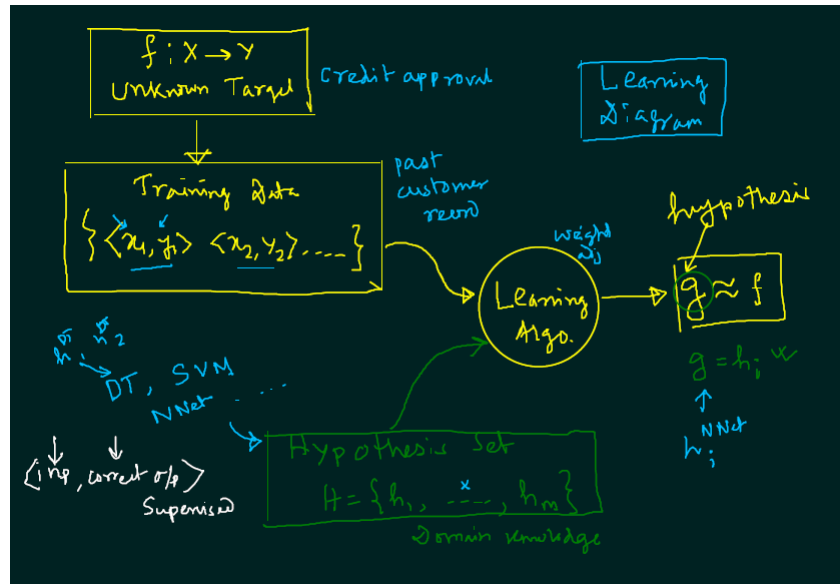 f : X → Y
Unknown Target
credit approval
Learning
Diagram
Training Data
{ <x₁, y₁> <x₂, y₂> ..... }
past
customer
record
hypothesis
weight
adj
Learning
Algo.
g ≈ f
g = hⱼ
NNet
hⱼ
DT DT
h₁ h₂
DT, SVM
NNet . . . .
<inp, correct o/p>
Supervised
Hypothesis Set
H = {h₁, ....., hₘ}
x
Domain knowledge